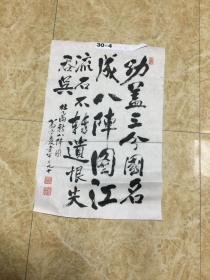 30-4
功盖三分國名
成八阵图江
流石不转遗恨失
吞吴
杜甫诗八阵图